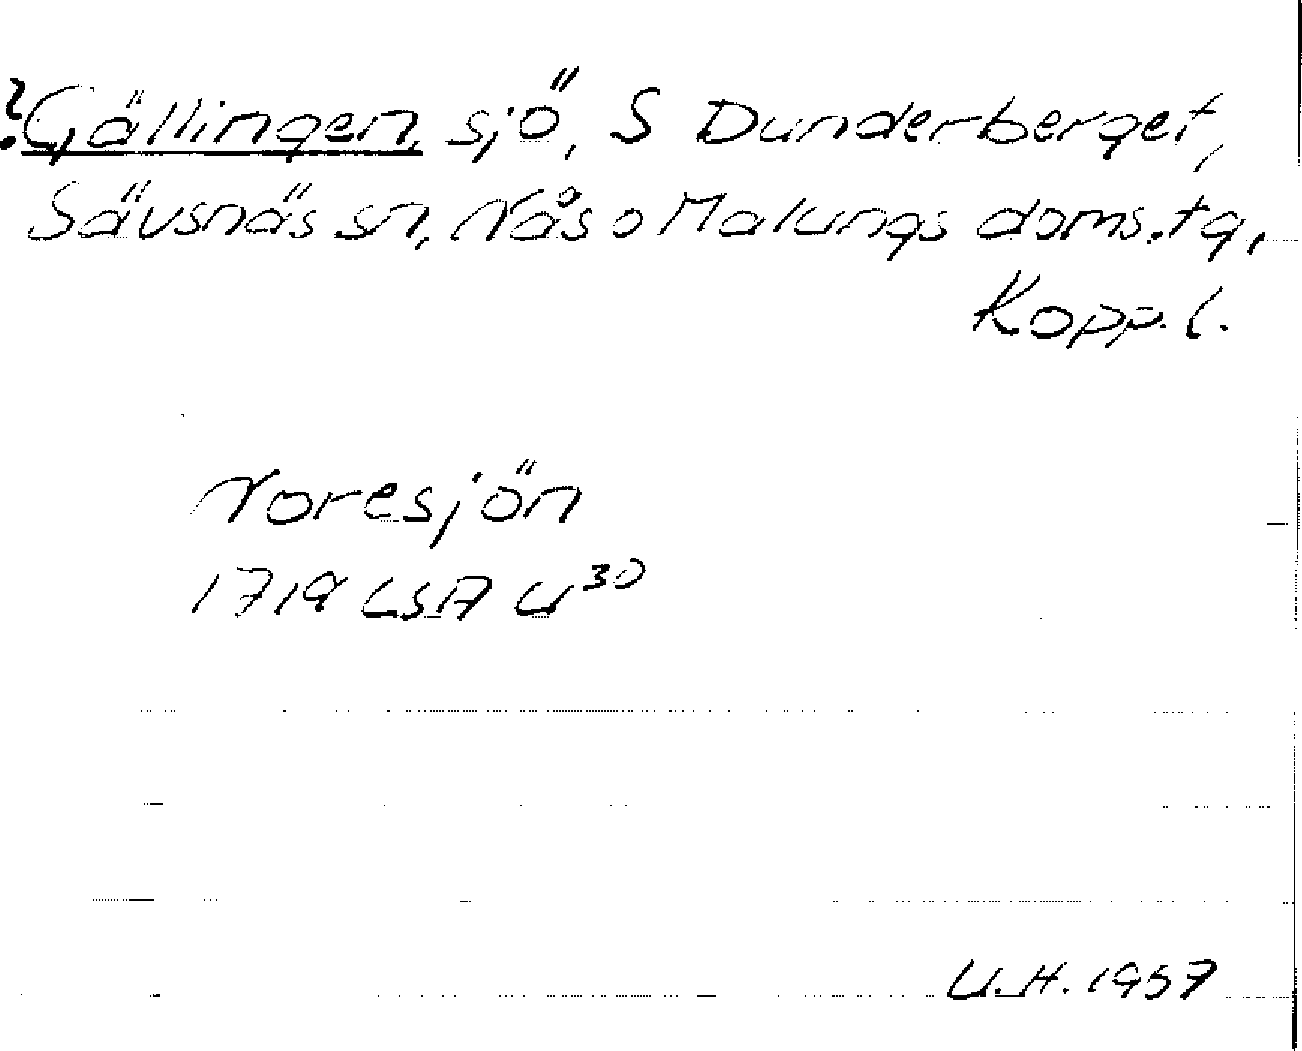 ? Gällingen, sjö, S Dunderberget,
Sävsnäs sn, Nås o Malungs doms.tg,
Kopp. l.
Noresjön
1719 LSA U³⁰
U.H. 1957